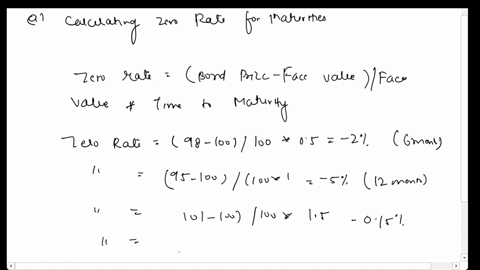 Q1 Calculating Zero Rate for Maturities
Zero rate = (Bond Price - Face value) / Face
Value * Time to Maturity
Zero Rate = (98-100) / 100 * 0.5 = -2% (6 mons)
" = (95-100) / (100 * 1 = -5% (12 mons)
" = 101-100) / 100 * 1.5 - 0.15%
" =